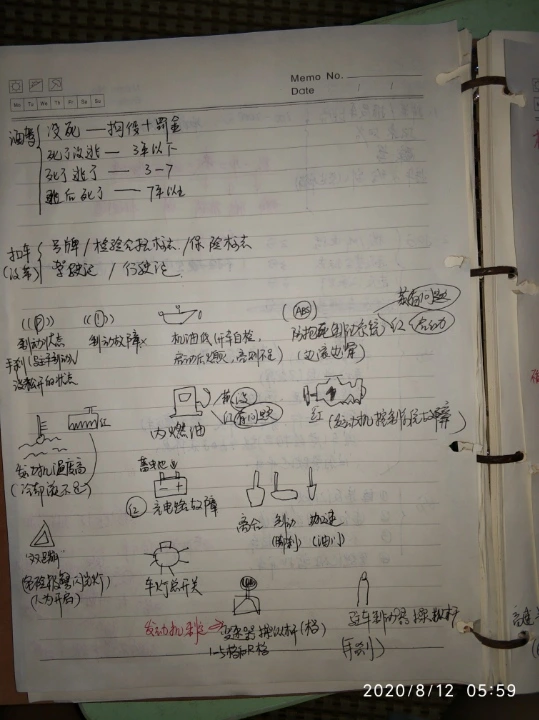 Memo No.
Mo Tu We Th Fr Sa Su
Date / /
没死 — 拘役+罚金
死了没逃 — 3年以下
死了逃了 — 3-7
逃后死了 — 7年以上
扣车 号牌 / 检验合格标志 / 保险标志
驾驶证 / 行驶证
((P)) ((!)) (ABS)
制动状态 制动故障 防抱死制动系统 红
手刹
没松开的状态
内燃油 红 (发动机控制系统故障)
发动机温度高
(冷却液不足)
蓄电池
红 充电电路故障
离合 制动 加速
(脚刹) (油门)
危险报警闪光灯
(人为开启)
车灯总开关
发动机制动 变速器操纵杆
1-5档和R档
驻车制动器操纵杆
(手刹)
2020/8/12 05:59